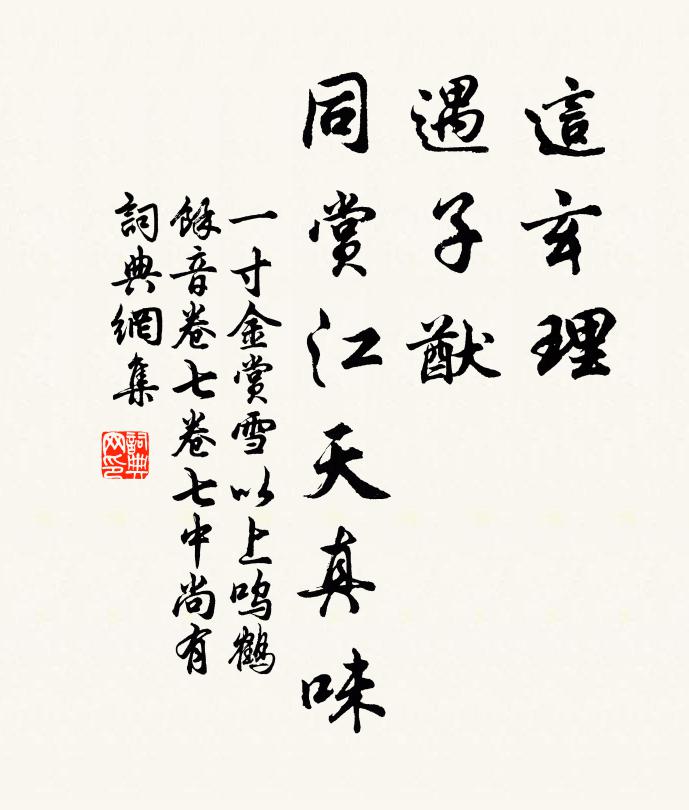 這玄理
遇子猷
同賞江天真味
一寸金賞雪以上鸣鶴
餘音卷七卷七中尚有
詞典網集
詞典网印